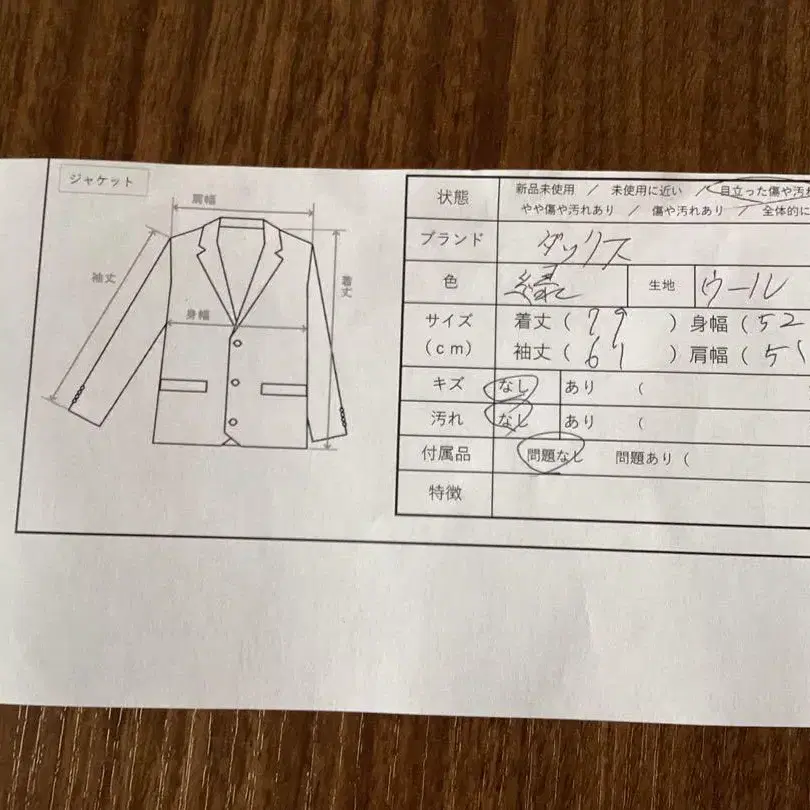 ジャケット
肩幅
袖丈
着丈
身幅
状態 新品未使用 / 未使用に近い / 目立った傷や汚れ
やや傷や汚れあり / 傷や汚れあり / 全体的に
ブランド ダックス
色 緑 生地 ウール
サイズ 着丈 ( 79 ) 身幅 ( 52
(cm) 袖丈 ( 61 ) 肩幅 (
キズ なし あり (
汚れ なし あり (
付属品 問題なし 問題あり (
特徴